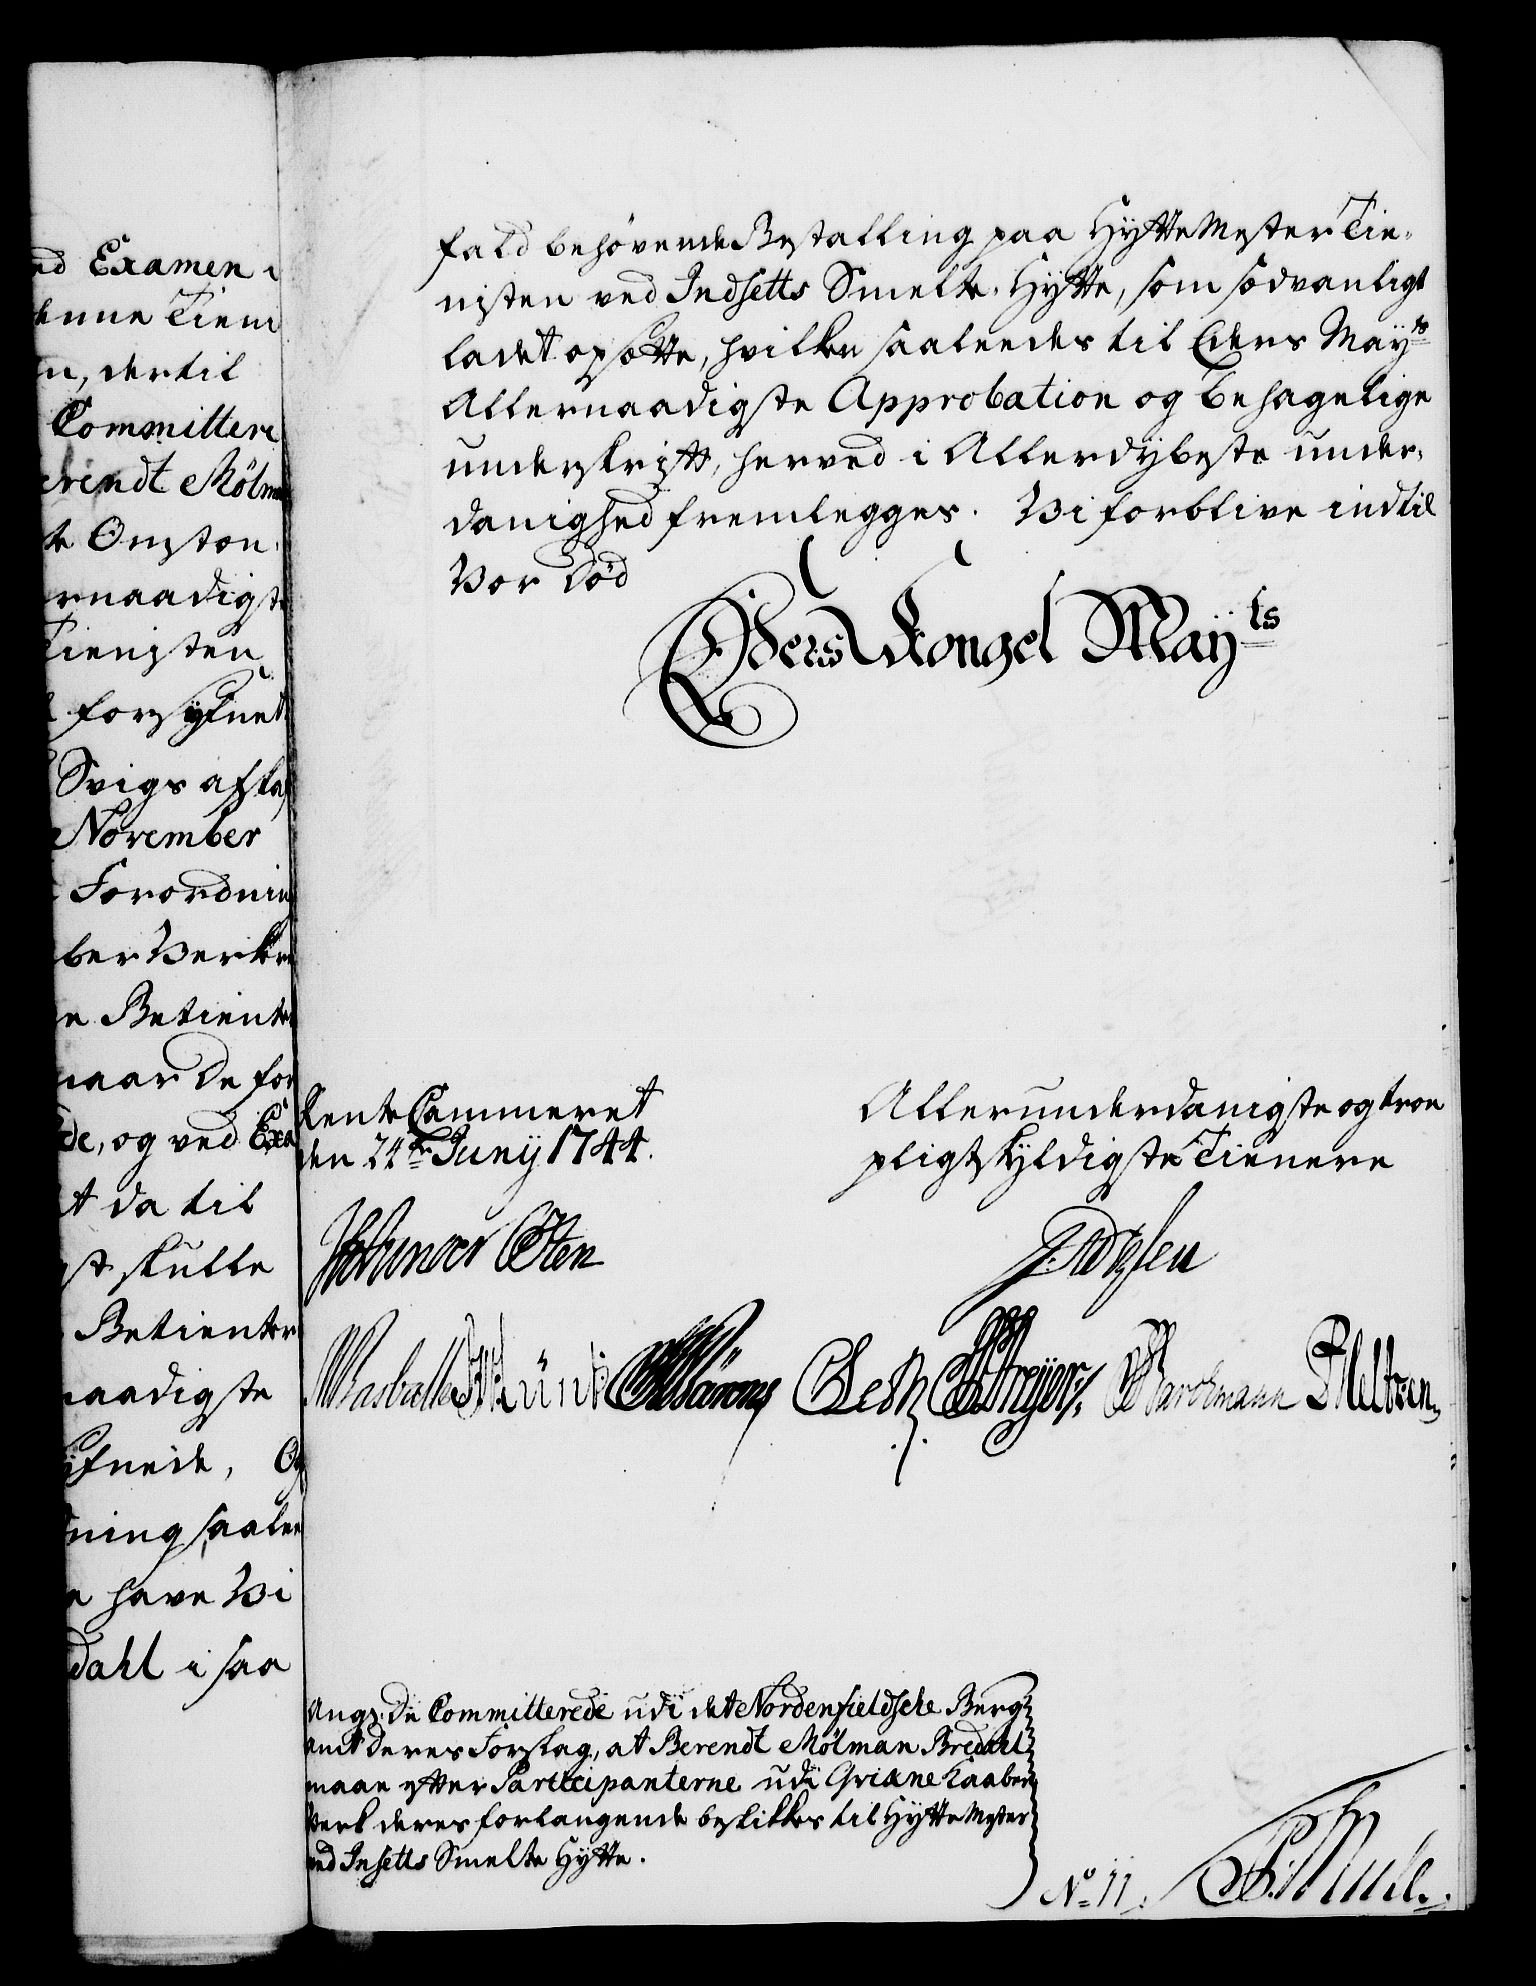 ed Examen i
denne Tieni
n, dertil
Committere
Berindt Mölm
te Omston
ernaadigst
Tienisten
forsyfnet
Svigs afska
November
Forordnin
ber Verker
e Betiente
naar De for
de, og ved Exa
t da til
gst skulle
Betienter
naadigste
yfnede, Og
ning saalee
e have Vi
dahl i saa
fald behøvende Bestalling paa HytteMester Tie-
nisten ved Indsetts Smelte-Hytte, som sædvanligt
ladet opsætte, hvilken saaleedes til Eders Mayts
Allernaadigste Approbation og behagelige
underskrift, herved i Allerdybeste under-
danighed fremlegges. Vi forblive indtil
Vor Død
Eders Kongel Mayts
RenteCammeret
den 24de Junij 1744.
Allerunderdanigste og troe
pligtskyldigste Tienere
Angs: De Committerede udi det Nordenfieldsche Berg-
amt deres Forslag, at Berendt Mölman Bredahl
maae efter Participanterne udi Qvikne Kaaber-
Verk deres forlangende beskikkes til HytteMester
ved Insetts Smelte Hytte.
No 11.